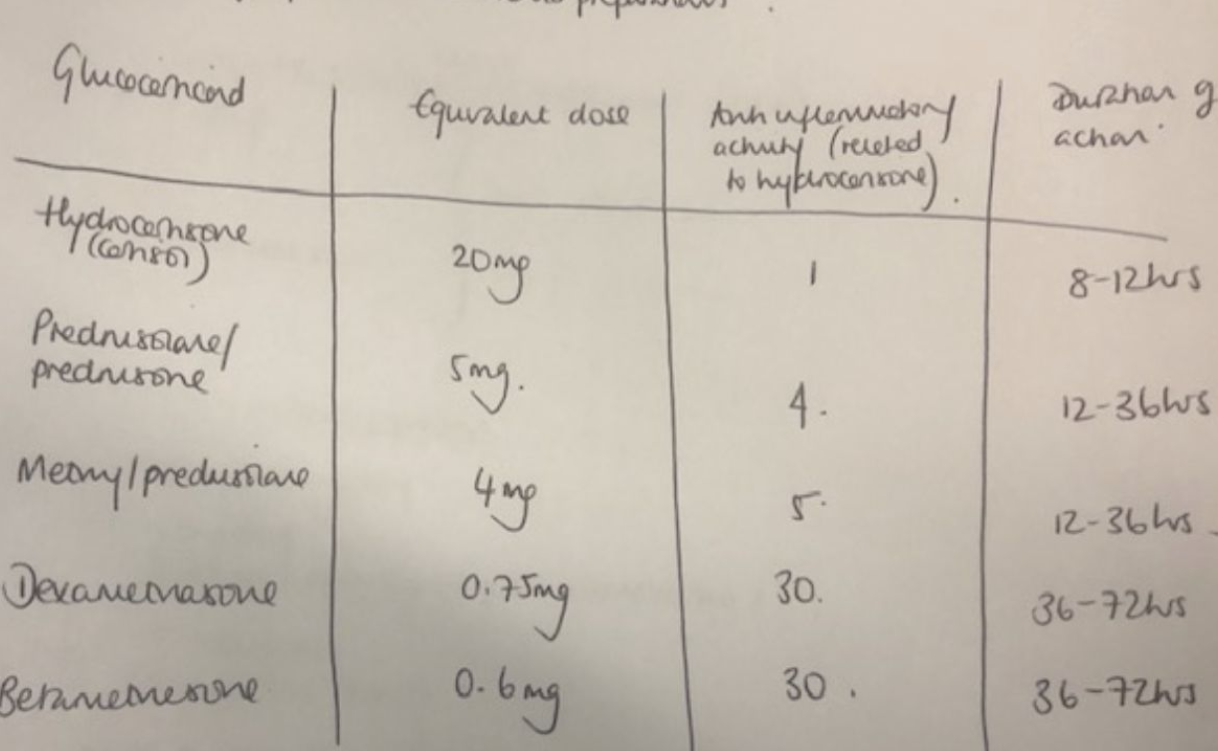 Glucocorticoid
Equivalent dose
Anti inflammatory
activity (related
to hydrocortisone).
Duration of
action.
Hydrocortisone
(cortisol)
20mg
1
8-12hrs
Prednisolone/
prednisone
5mg.
4.
12-36hrs
Methylprednisolone
4mg
5.
12-36hrs.
Dexamethasone
0.75mg
30.
36-72hrs
Betamethasone
0.6mg
30.
36-72hrs